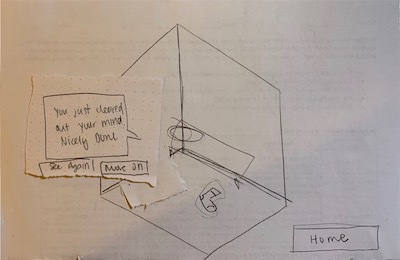 You just cleared
out your mind
Nicely Done
See Again
Move on
Home